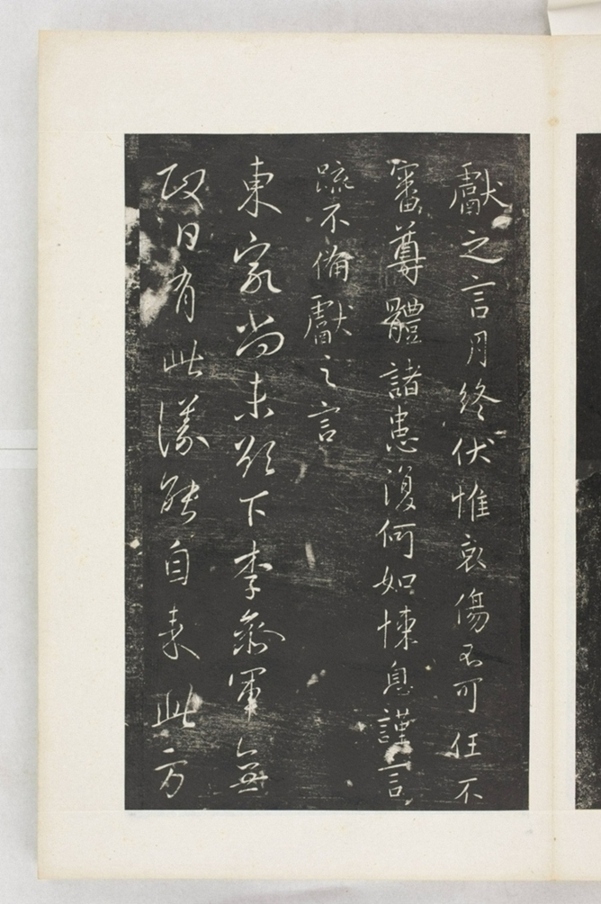 獻之言月終伏惟哀傷不可任不
審尊體諸患復何如悚息謹言
疏不倫獻之言
東家尚未欲下李參軍無
日有此議能自來此方